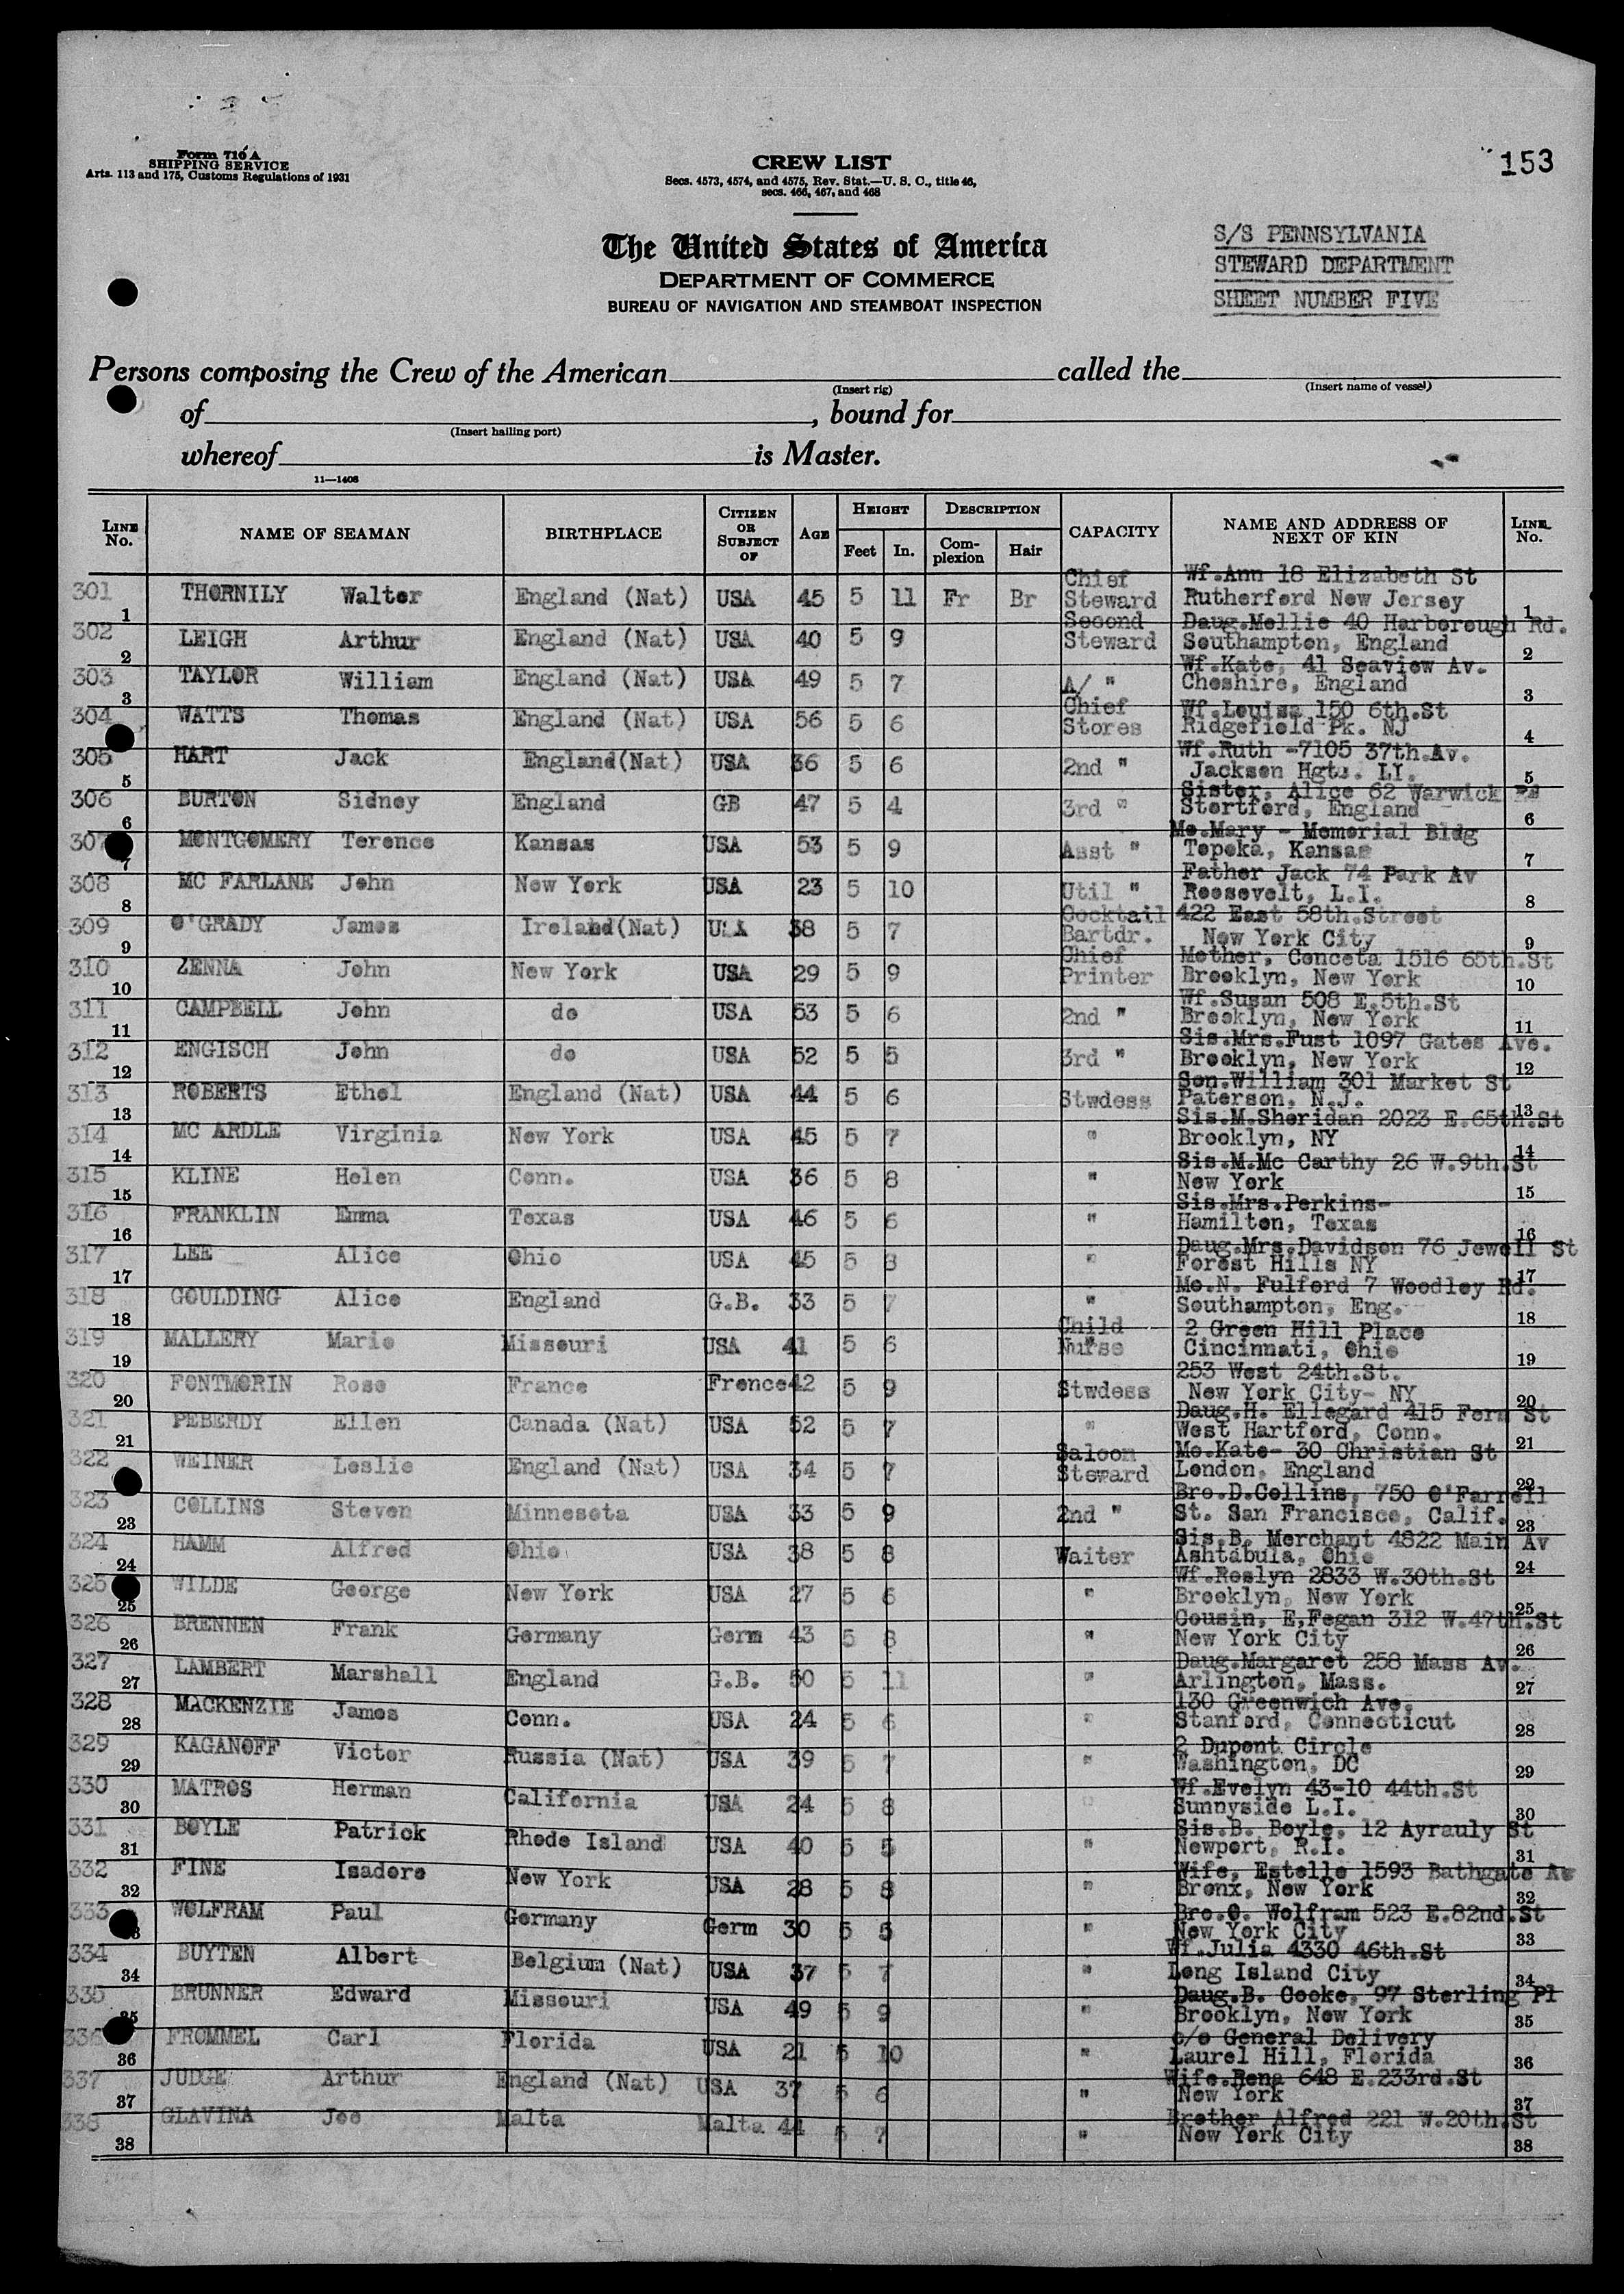 Form 710 A
SHIPPING SERVICE
Arts. 113 and 175, Customs Regulations of 1931
CREW LIST
Secs. 4573, 4574, and 4575, Rev. Stat.—U. S. C., title 46,
secs. 466, 467, and 468
153
The United States of America
DEPARTMENT OF COMMERCE
BUREAU OF NAVIGATION AND STEAMBOAT INSPECTION
S/S PENNSYLVANIA
STEWARD DEPARTMENT
SHEET NUMBER FIVE
Persons composing the Crew of the American called the
(Insert rig) (Insert name of vessel)
of , bound for
(Insert hailing port)
whereof is Master.
11—1408
LINE No. NAME OF SEAMAN BIRTHPLACE CITIZEN OR SUBJECT OF AGE HEIGHT Feet In. DESCRIPTION Complexion Hair CAPACITY NAME AND ADDRESS OF NEXT OF KIN LINE No.
Chief Wf.Ann 18 Elizabeth St
301 1 THORNILY Walter England (Nat) USA 45 5 11 Fr Br Steward Rutherford New Jersey 1
Second Daug.Mellie 40 Harborough Rd.
302 2 LEIGH Arthur England (Nat) USA 40 5 9 Steward Southampton, England 2
Wf.Kate, 41 Seaview Av.
303 3 TAYLOR William England (Nat) USA 49 5 7 A/ " Cheshire, England 3
Chief Wf.Louisa 150 6th.St
304 WATTS Thomas England (Nat) USA 56 5 6 Stores Ridgefield Pk. NJ 4
Wf.Ruth -7105 37th.Av.
305 5 HART Jack England(Nat) USA 36 5 6 2nd " Jackson Hgts. LI. 5
Sister, Alice 62 Warwick Rd
306 6 BURTON Sidney England GB 47 5 4 3rd " Stortford, England 6
Mo.Mary - Memorial Bldg
307 7 MONTGOMERY Terence Kansas USA 53 5 9 Asst " Topeka, Kansas 7
Father Jack 74 Park Av
308 8 MC FARLANE John New York USA 23 5 10 Util " Roosevelt, L.I. 8
Cocktail 422 East 58th.Street
309 9 O'GRADY James Ireland(Nat) USA 38 5 7 Bartdr. New York City 9
Chief Mother, Conceta 1516 65th.St
310 10 ZENNA John New York USA 29 5 9 Printer Brooklyn, New York 10
Wf.Susan 508 E.5th.St
311 11 CAMPBELL John do USA 53 5 6 2nd " Brooklyn, New York 11
Sis.Mrs.Fust 1097 Gates Ave.
312 12 ENGISCH John do USA 52 5 5 3rd " Brooklyn, New York 12
Son.William 301 Market St
313 13 ROBERTS Ethel England (Nat) USA 44 5 6 Stwdess Paterson, N.J. 13
Sis.M.Sheridan 2023 E.65th.St
314 14 MC ARDLE Virginia New York USA 45 5 7 " Brooklyn, NY 14
Sis.M.Mc Carthy 26 W.9th.St
315 15 KLINE Helen Conn. USA 36 5 8 " New York 15
Sis.Mrs.Perkins-
316 16 FRANKLIN Emma Texas USA 46 5 6 " Hamilton, Texas 16
Daug.Mrs.Davidson 76 Jewell St
317 17 LEE Alice Ohio USA 45 5 8 " Forest Hills NY 17
Mo.N. Fulford 7 Woodley Rd.
318 18 GOULDING Alice England G.B. 33 5 7 " Southampton, Eng. 18
Child 2 Green Hill Place
319 19 MALLERY Marie Missouri USA 41 5 6 Nurse Cincinnati, Ohio 19
253 West 24th.St.
320 20 FONTMORIN Rose France Frence 42 5 9 Stwdess New York City- NY 20
Daug.H. Ellegard 415 Fern St
321 21 PEBERDY Ellen Canada (Nat) USA 52 5 7 " West Hartford, Conn. 21
Saloon Mo.Kate- 30 Christian St
322 WEINER Leslie England (Nat) USA 34 5 7 Steward London, England 22
Bro.D.Collins, 750 O'Farrell
323 23 COLLINS Steven Minnesota USA 33 5 9 2nd " St. San Francisco, Calif. 23
Sis.B. Merchant 4822 Main Av
324 24 HAMM Alfred Ohio USA 38 5 8 Waiter Ashtabula, Ohio 24
Wf.Roslyn 2833 W.30th.St
325 25 WILDE George New York USA 27 5 6 " Brooklyn, New York 25
Cousin, E,Fegan 312 W.47th.St
326 26 BRENNEN Frank Germany Germ 43 5 8 " New York City 26
Daug.Margaret 258 Mass Av.
327 27 LAMBERT Marshall England G.B. 50 5 11 " Arlington, Mass. 27
130 Greenwich Ave.
328 28 MACKENZIE James Conn. USA 24 5 6 " Stanford, Connecticut 28
2 Dupont Circle
329 29 KAGANOFF Victor Russia (Nat) USA 39 5 7 " Washington, DC 29
Wf.Evelyn 43-10 44th.St
330 30 MATROS Herman California USA 24 5 8 " Sunnyside L.I. 30
Sis.B. Boyle, 12 Ayrauly St
331 31 BOYLE Patrick Rhode Island USA 40 5 5 " Newport, R.I. 31
Wife, Estelle 1593 Bathgate Av
332 32 FINE Isadore New York USA 28 5 8 " Bronx, New York 32
Bro.O. Wolfram 523 E.82nd.St
333 WOLFRAM Paul Germany Germ 30 5 5 " New York City 33
Wf.Julia 4330 46th.St
334 34 BUYTEN Albert Belgium (Nat) USA 37 5 7 " Long Island City 34
Daug.B. Cooke, 97 Sterling Pl
335 35 BRUNNER Edward Missouri USA 49 5 9 " Brooklyn, New York 35
c/o General Delivery
336 36 FROMMEL Carl Florida USA 21 5 10 " Laurel Hill, Florida 36
Wife.Rena 648 E.233rd.St
337 37 JUDGE Arthur England (Nat) USA 37 5 6 " New York 37
Brother Alfred 221 W.20th.St
338 38 GLAVINA Joe Malta Malta 44 5 7 " New York City 38